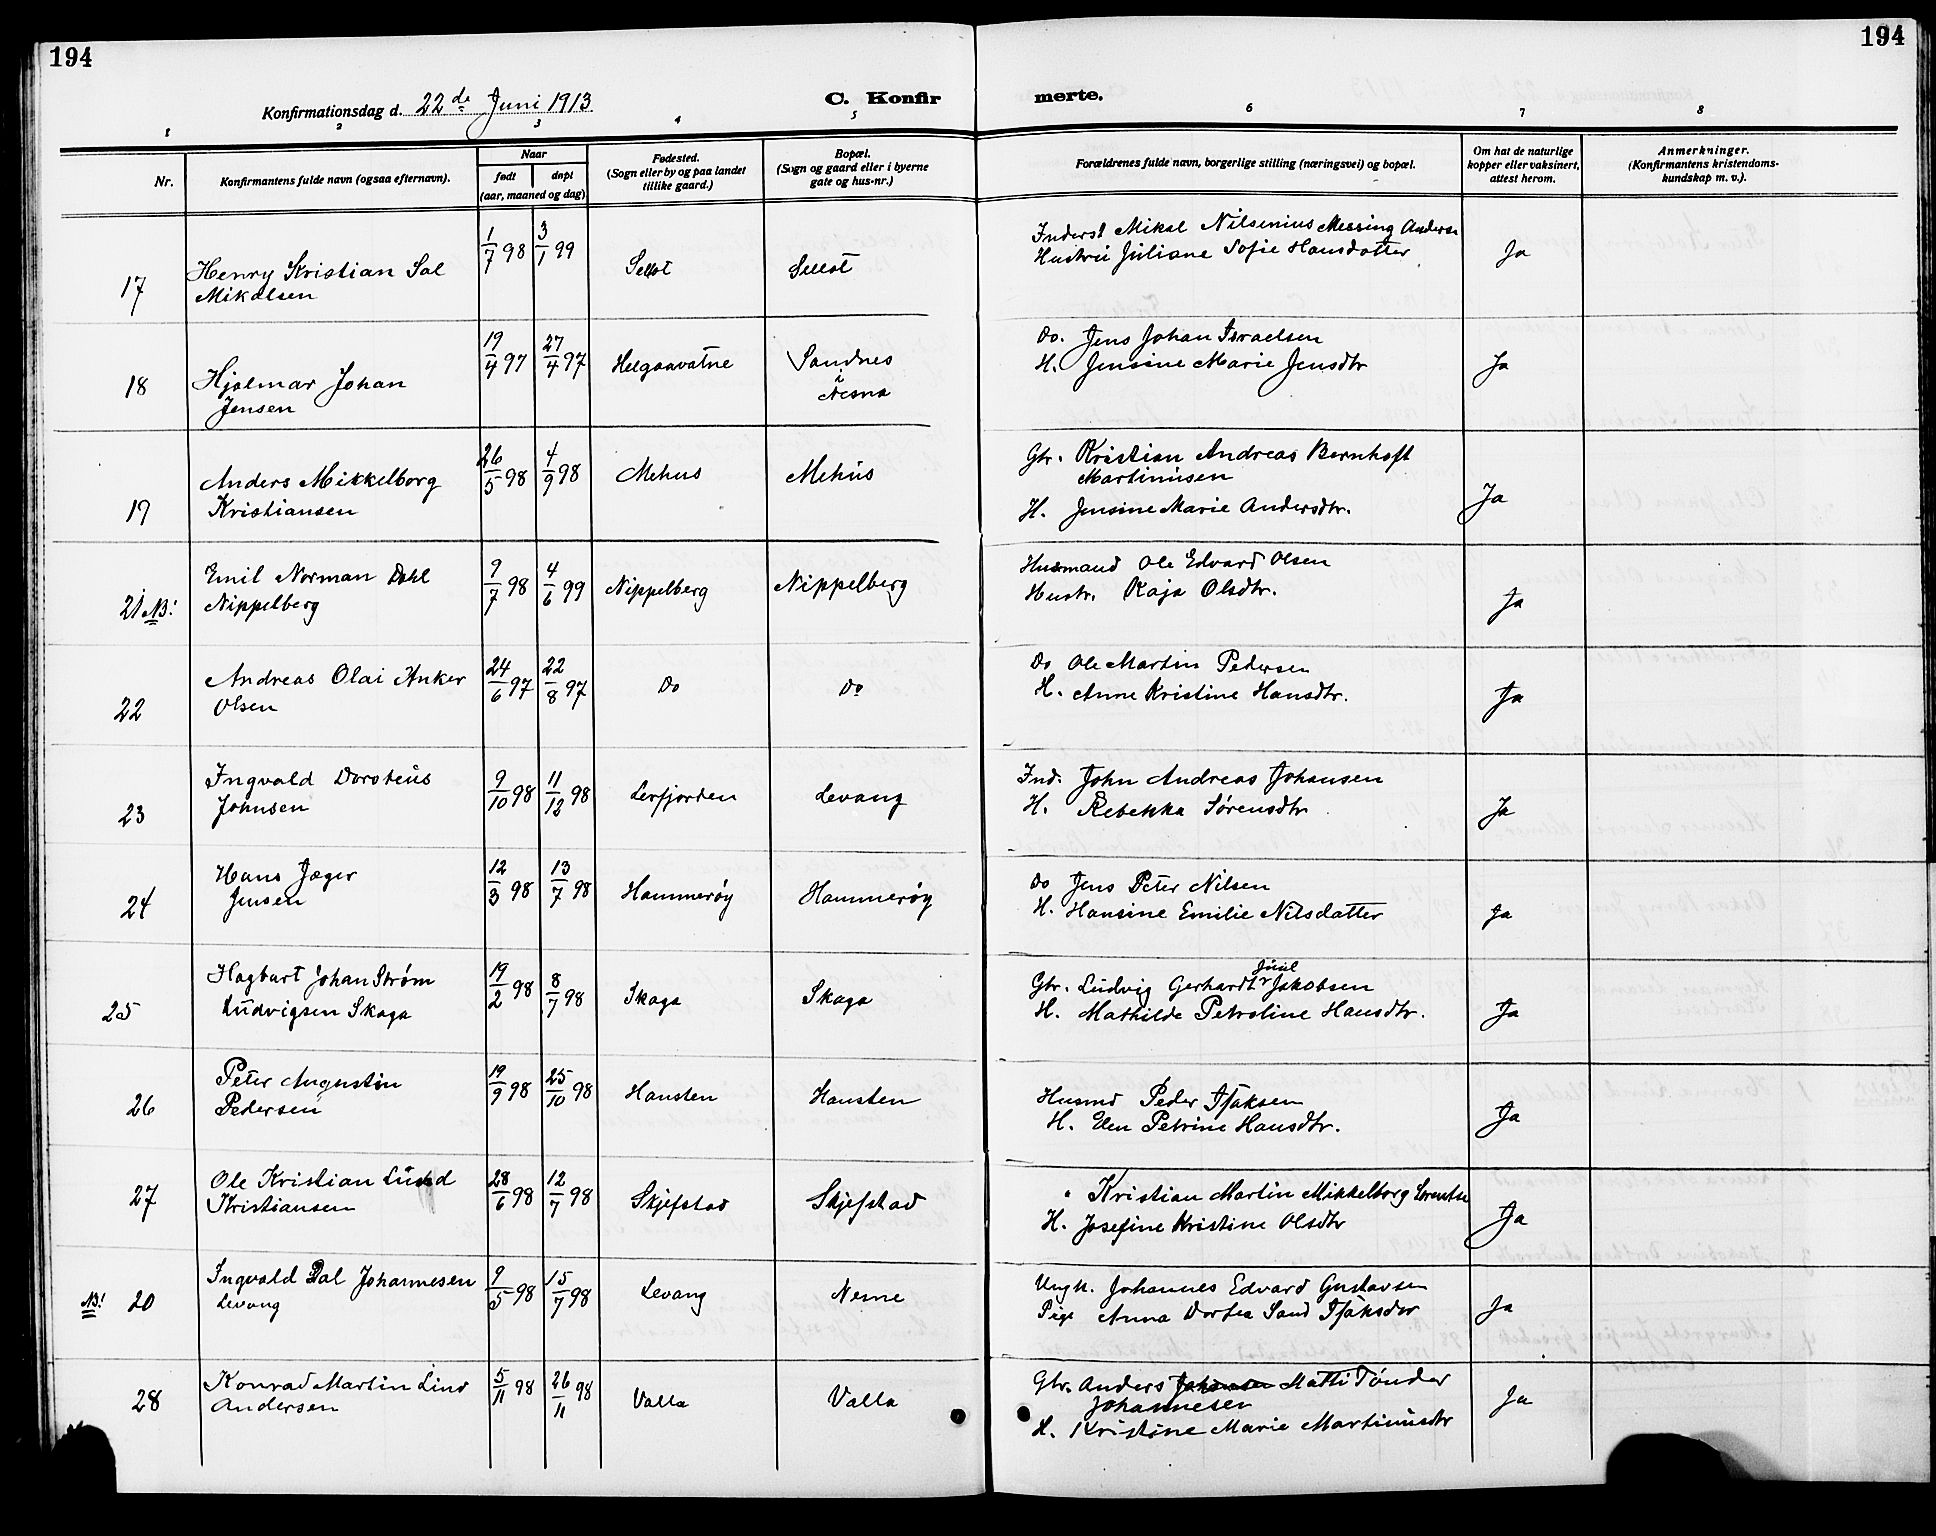 194
194
Konfirmationsdag d. 22de Juni 1913
C. Konfir
merte.
1 2 3 4 5 6 7 8
Nr.
Konfirmantens fulde navn (ogsaa efternavn).
Naar
født
døpt
(aar, maaned og dag)
Fødested.
(Sogn eller by og paa landet
tillike gaard.)
Bopæl.
(Sogn og gaard eller i byerne
gate og hus-nr.)
Forældrenes fulde navn, borgerlige stilling (næringsvei) og bopæl.
Om hat de naturlige
kopper eller vaksinert,
attest herom.
Anmerkninger.
(Konfirmantens kristendoms-
kundskap m. v.).
17 Henry Kristian Sal 1/7 98 3/1 99 Inderst Mikal Nilsenius Messing Andersen
Mikalsen Hustru Juliane Sofie Hansdatter Ja
18 Hjalmar Johan 19/4 97 27/4 97 Helgaavatne Sandnes Do. Jens Johan Israelsen
Jensen i Nesna H. Jensine Marie Jensdtr Ja
19 Anders Mikkelborg 26/5 98 4/9 98 Mehus Mehus Gbr. Kristian Andreas Bernhoft
Kristiansen Martinusen
H. Jensine Marie Andersdtr. Ja
21 NB! Emil Norman Dahl 9/7 98 4/6 99 Nippelberg Nippelberg Husmand Ole Edvard Olsen
Nippelberg Hustr. Kaja Olsdtr. Ja
22 Andreas Olai Anker 24/6 97 22/8 97 Do Do Do Ole Martin Pedersen
Olsen H. Anne Kristine Hansdtr. Ja
23 Ingvald Dorsteus 9/10 98 11/12 98 Lerfjorden Levang Ind. John Andreas Johansen
Johnsen H. Rebekka Sørensdtr Ja
24 Hans Jæger 12/3 98 13/7 98 Hammerøy Hammerøy Do Jens Peter Nilsen
Jensen H. Hansine Emilie Nilsdatter Ja
25 Hagbart Johan Strøm 19/2 98 8/7 98 Skaga Skaga Gbr. Ludvig Gerhardt Juul Jakobsen
Ludvigsen Skaga H. Mathilde Petroline Hansdtr. Ja
26 Peter Augustin 19/9 98 25/10 98 Hansten Hansten Husmd Peder Isaksen
Pedersen H. Elen Petrine Hansdtr. Ja
27 Ole Kristian Lund 28/6 98 12/7 98 Skjefstad Skjefstad " Kristian Martin Mikkelborg
Kristiansen H. Josefine Kristine Olsdtr Ja
NB! 20 Ingvald Dal Johannesen 9/5 98 15/7 98 Levang Nesne Ungk. Johannes Edvard Gustavsen
Levang Pige Anna Dortea Sand Isaksdtr Ja
28 Konrad Martin Lind 5/11 98 26/11 98 Valla Valla Gbr. Anders Johansen Matti Tönder
Andersen Johannesen
H. Kristine Marie Martinusdtr Ja